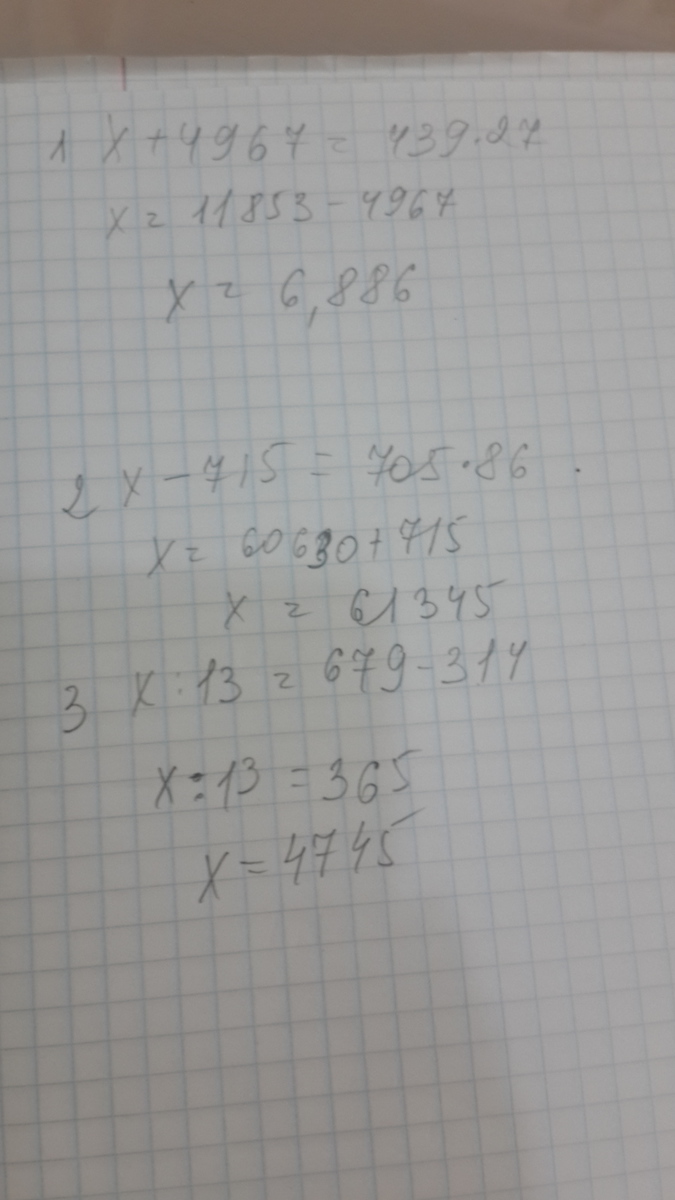 1 x + 4967 = 439·27
x = 11853 - 4967
x = 6,886
2 x - 715 = 705·86 .
x = 60630 + 715
x = 61345
3 x : 13 = 679 - 314
x : 13 = 365
x = 4745